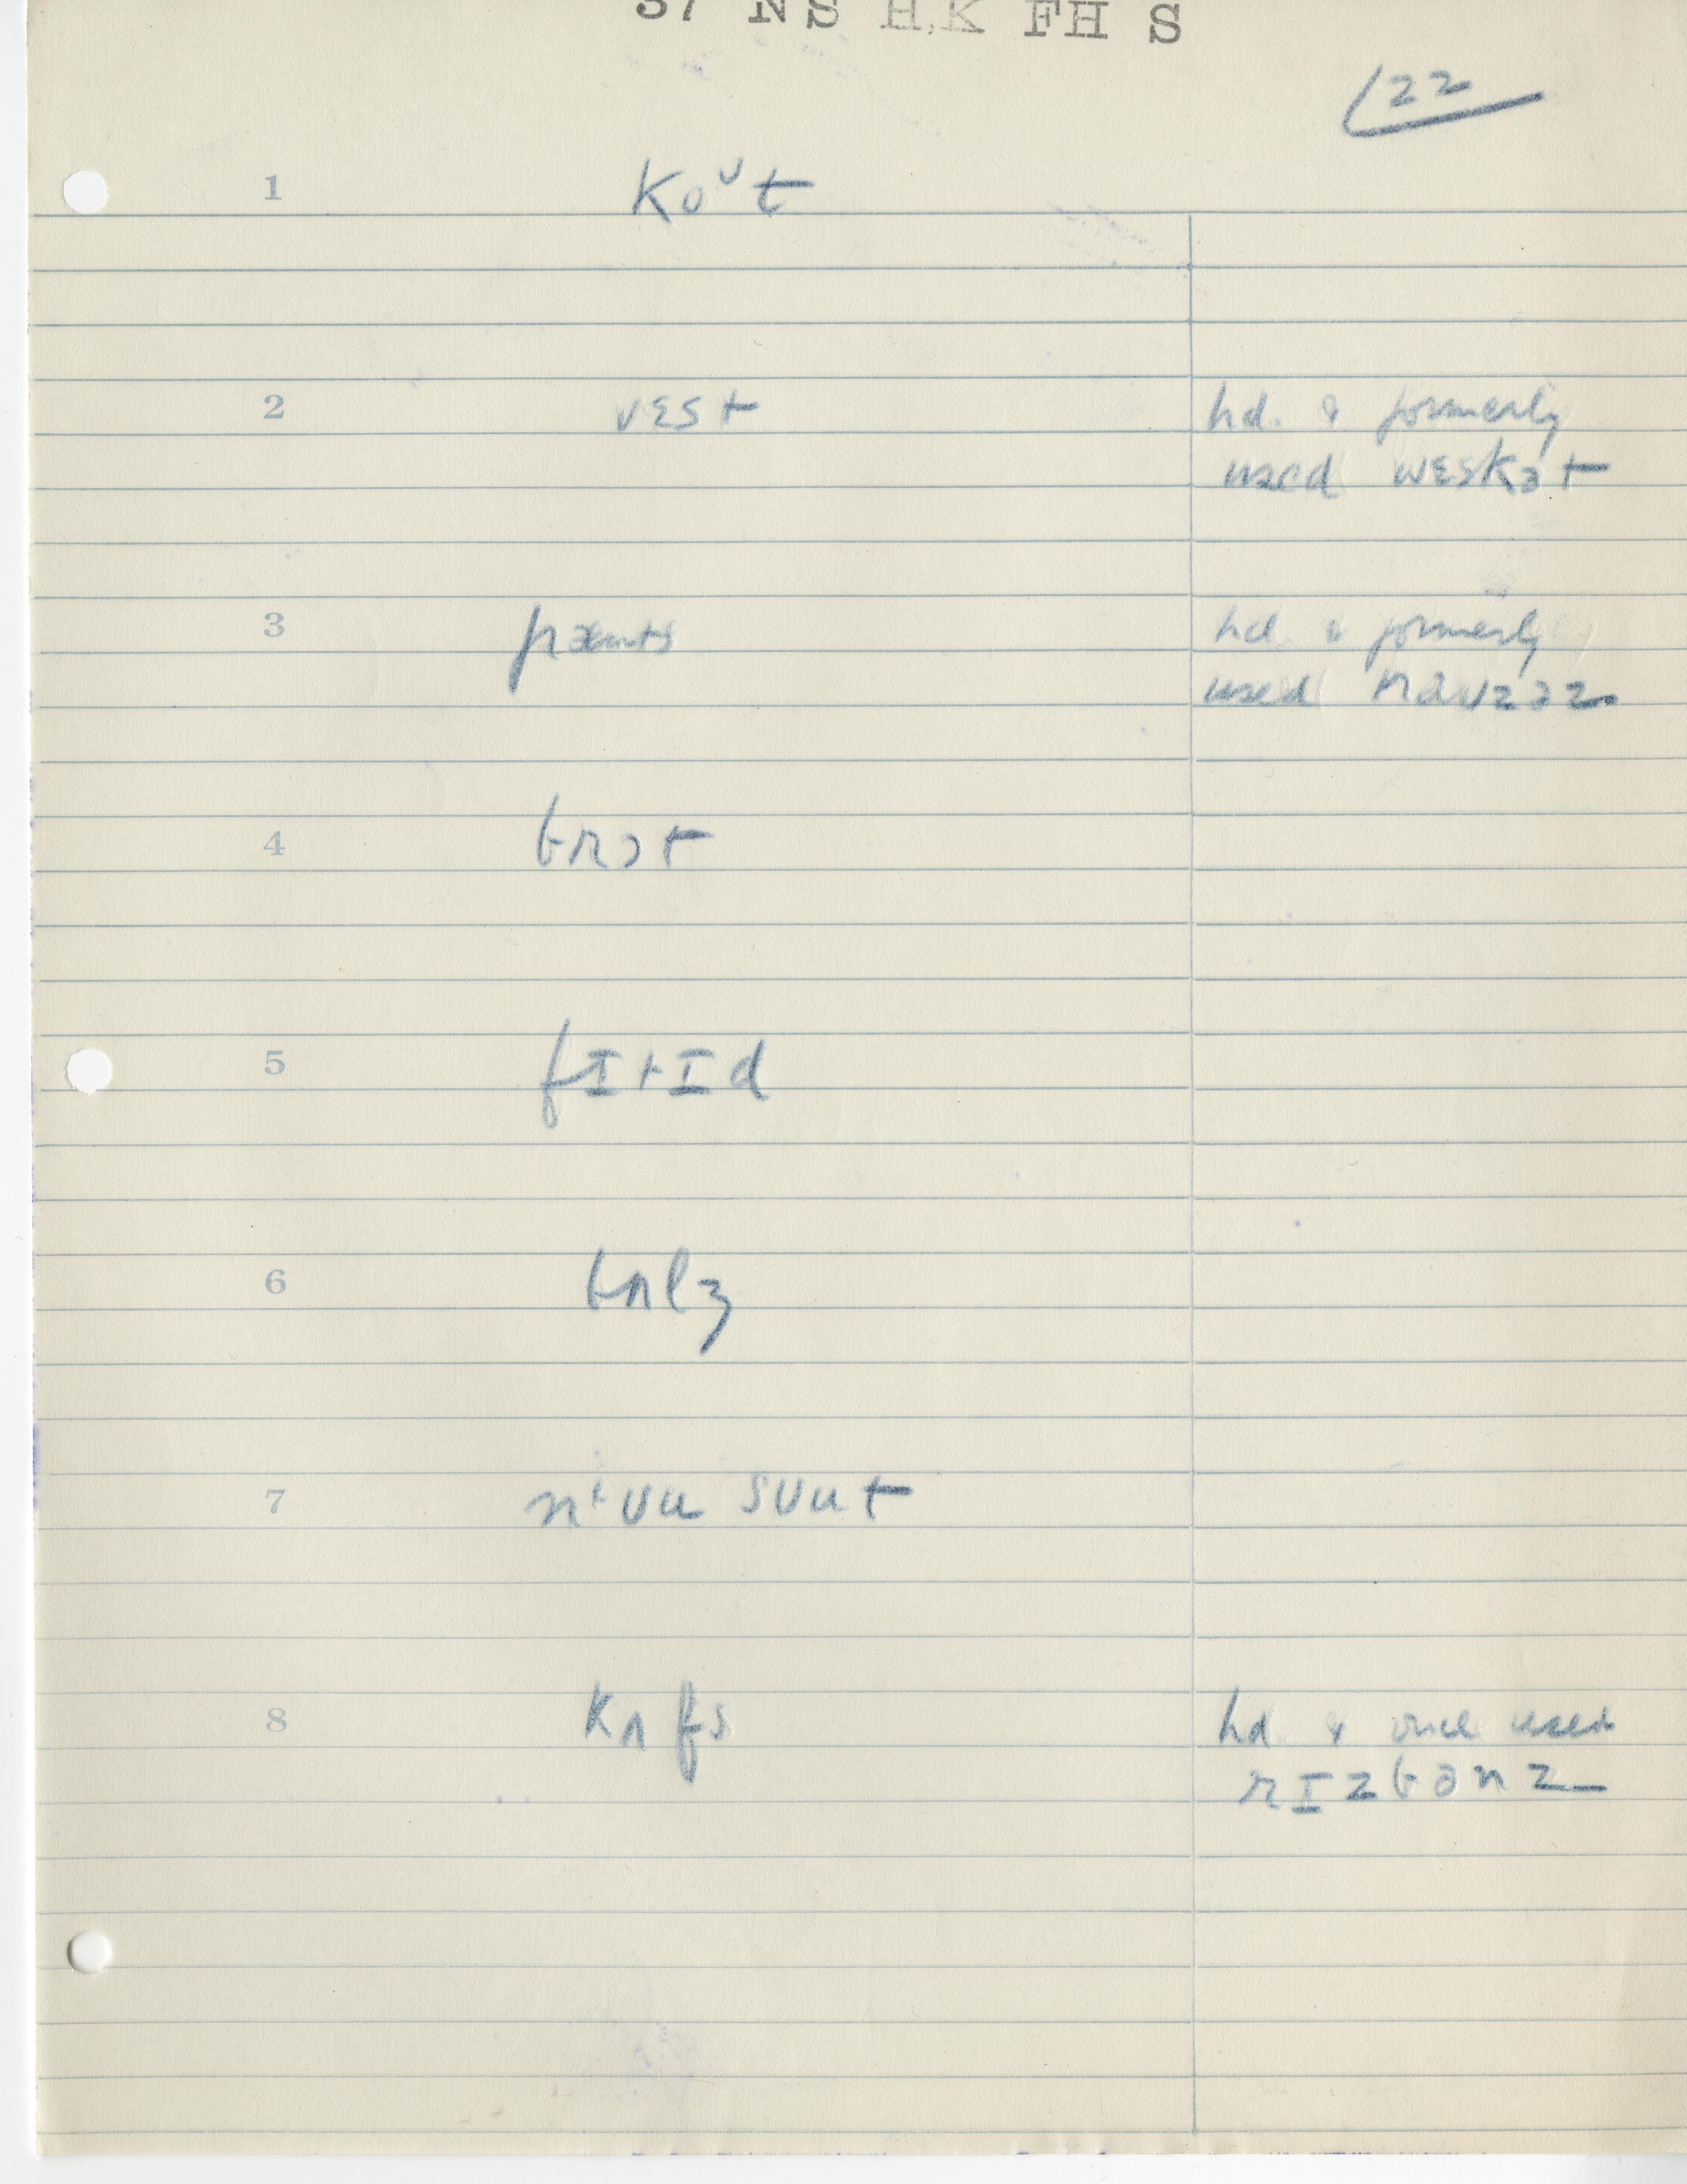 37 NS H.K FH S
22
1 koᶷt
2 vɛst
hd. & formerly
used wɛskət
3 pænts
hd. & formerly
used
4 brɔt
5 fɪtɪd
6
7 nᵗʊu sʊut
8 kʌfs
hd & once used
rɪzbənz